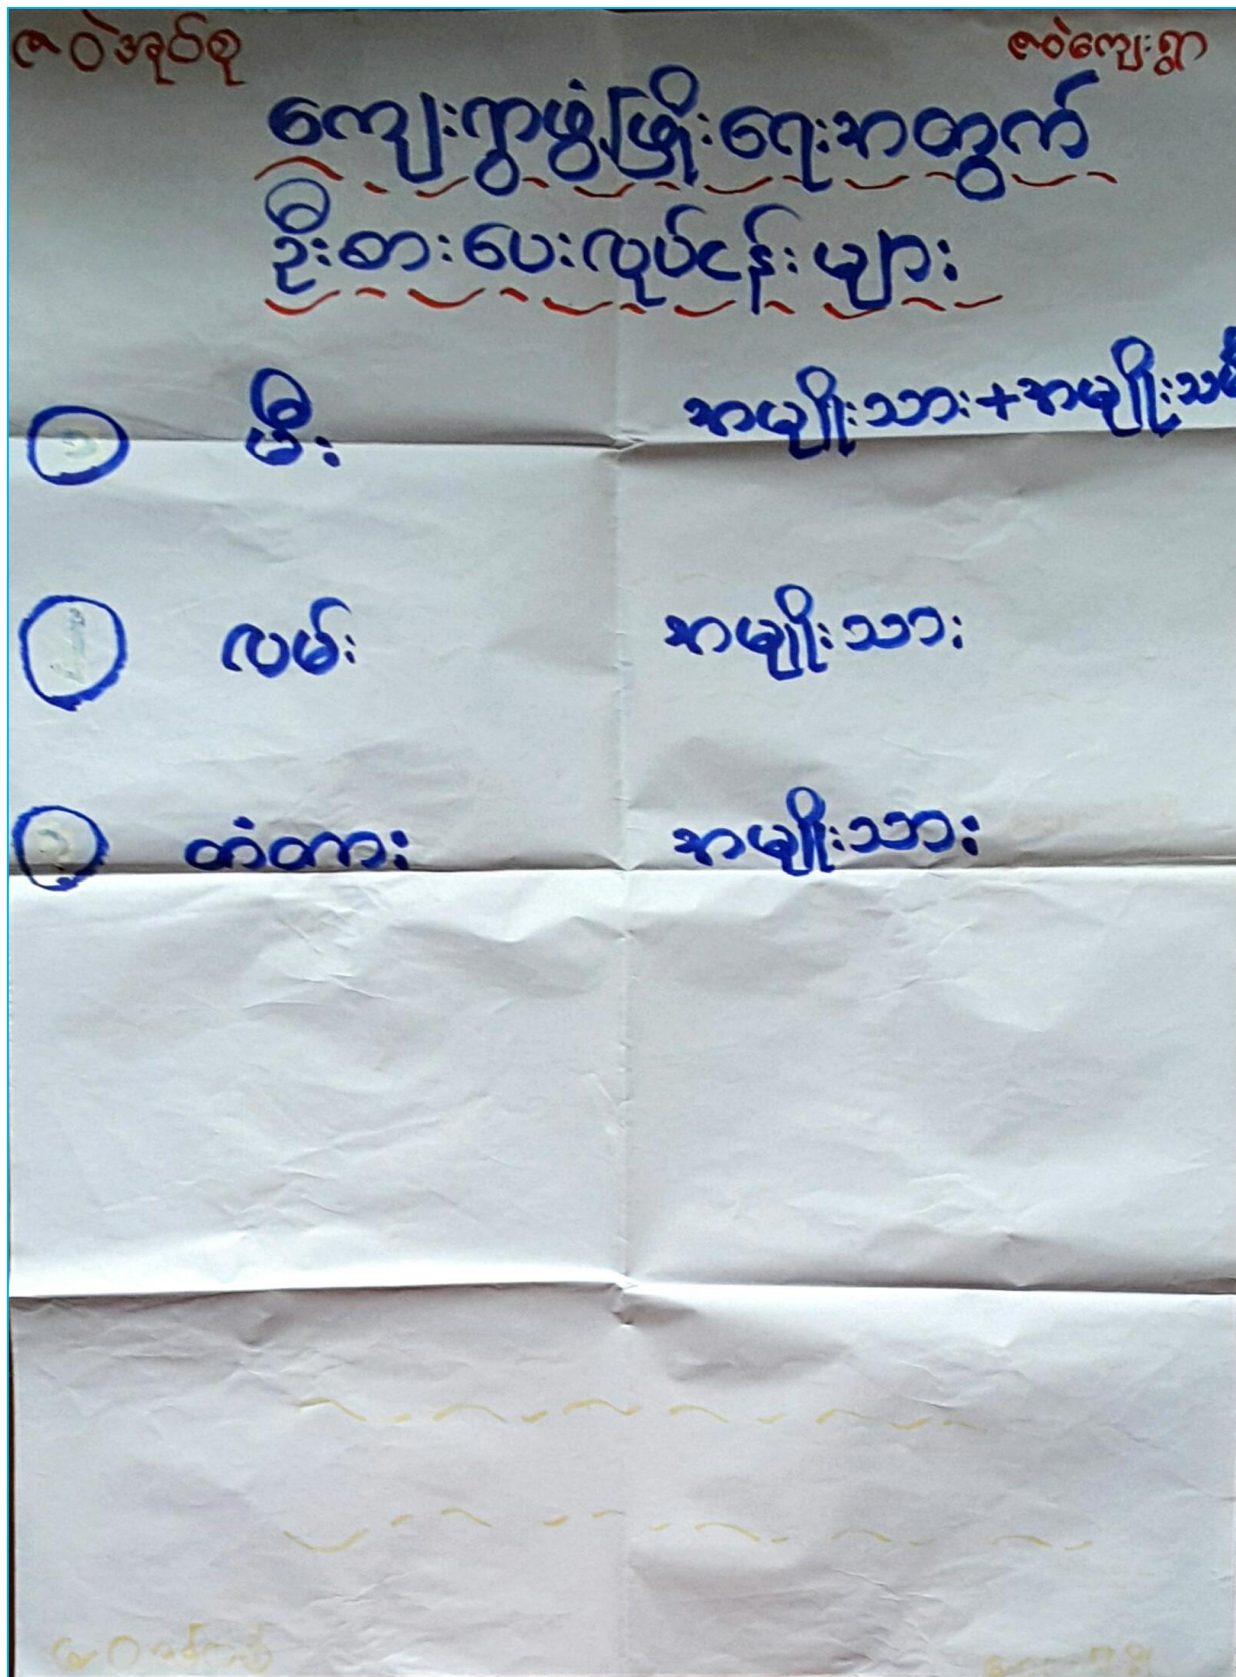 ဇဝဲအုပ်စု
ဇဝဲကျေးရွာ
ကျေးရွာဖွံ့ဖြိုးရေးအတွက်
ဦးစားပေးလုပ်ငန်းများ
မီး အမျိုးသား+အမျိုးသမီ
လမ်း အမျိုးသား
တံတား အမျိုးသား